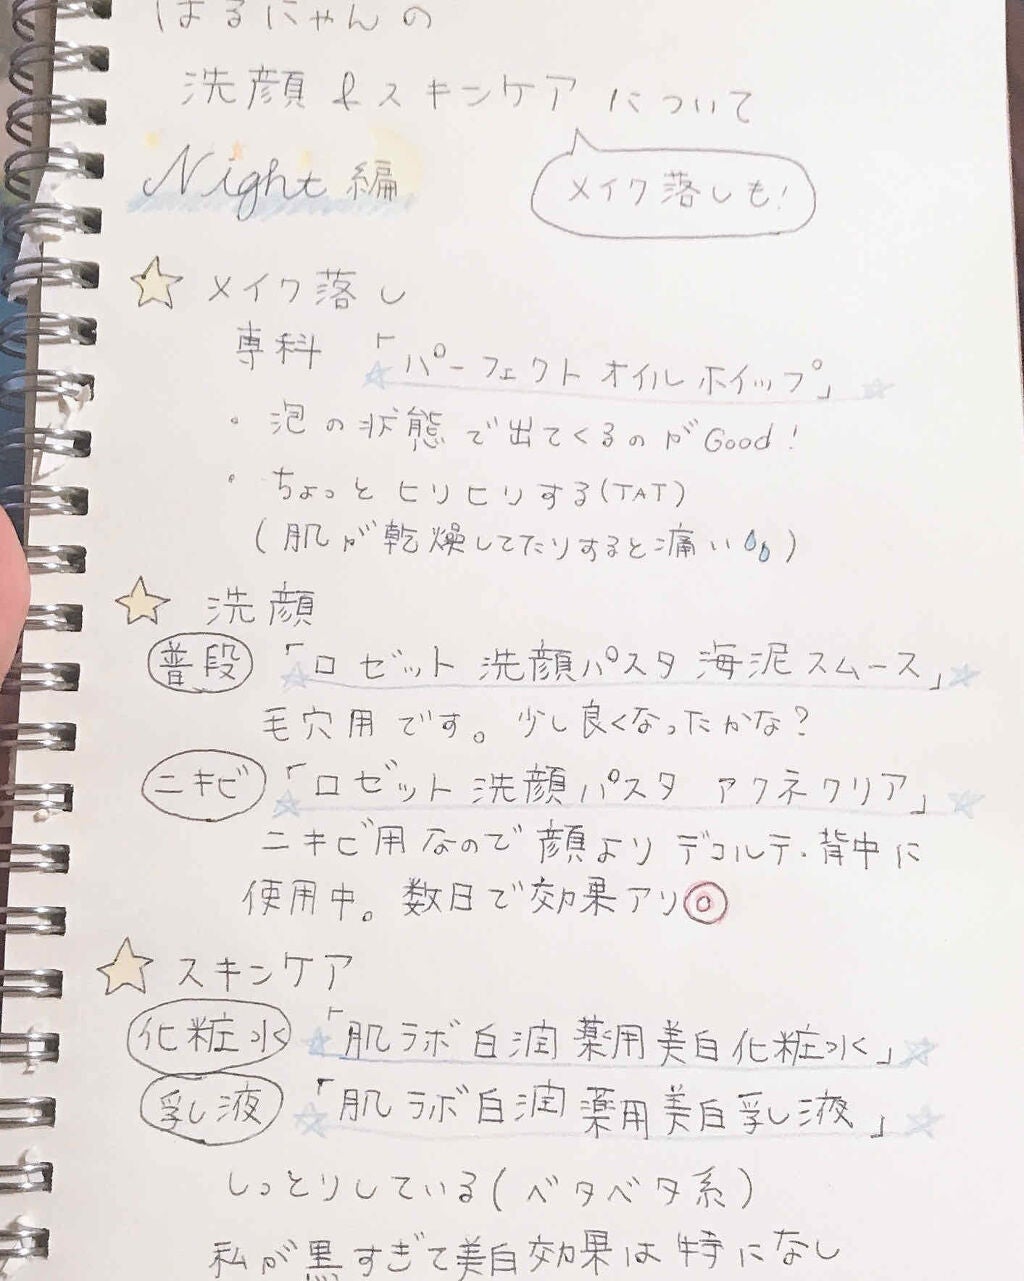 はるにゃんの
洗顔&スキンケアについて
Night編
メイク落しも!
メイク落し
専科 「パーフェクトオイルホイップ」
・泡の状態で出てくるのがGood!
・ちょっとヒリヒリする(TAT)
(肌が乾燥してたりすると痛い)
洗顔
普段 「ロゼット 洗顔パスタ 海泥スムース」
毛穴用です。少し良くなったかな?
ニキビ 「ロゼット 洗顔パスタ アクネクリア」
ニキビ用なので顔よりデコルテ・背中に
使用中。数日で効果アリ◎
スキンケア
化粧水 「肌ラボ 白潤 薬用美白化粧水」
乳液 「肌ラボ 白潤 薬用美白乳液」
しっとりしている(ベタベタ系)
私が黒すぎて美白効果は特になし